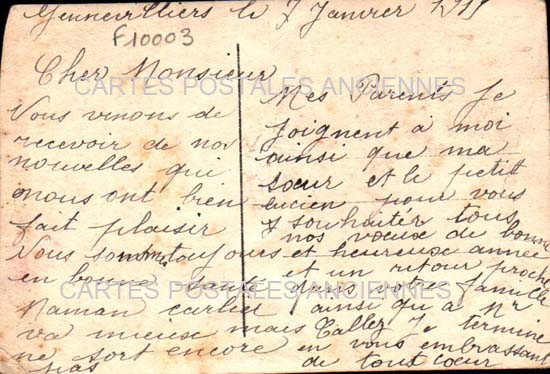 Gennevilliers le 7 Janvier
F10003
Cher Monsieur
CARTES POSTALES ANCIENNES
Vous venons de
recevoir de nos
nouvelles qui
nous ont bien
fait plaisir
Nous sommes toujours
en bonne santé
Maman
va mieux mais
ne sort encore
pas
Mes Parents se
joignent à moi
ainsi que ma
sœur et le petit
Lucien pour vous
souhaiter tous
nos vœux de bonne
et heureuse année
et un retour proche
dans votre famille
CARTES POSTALES ANCIENNES
ainsi qu a Mr
Je termine
en vous embrassant
de tout cœur